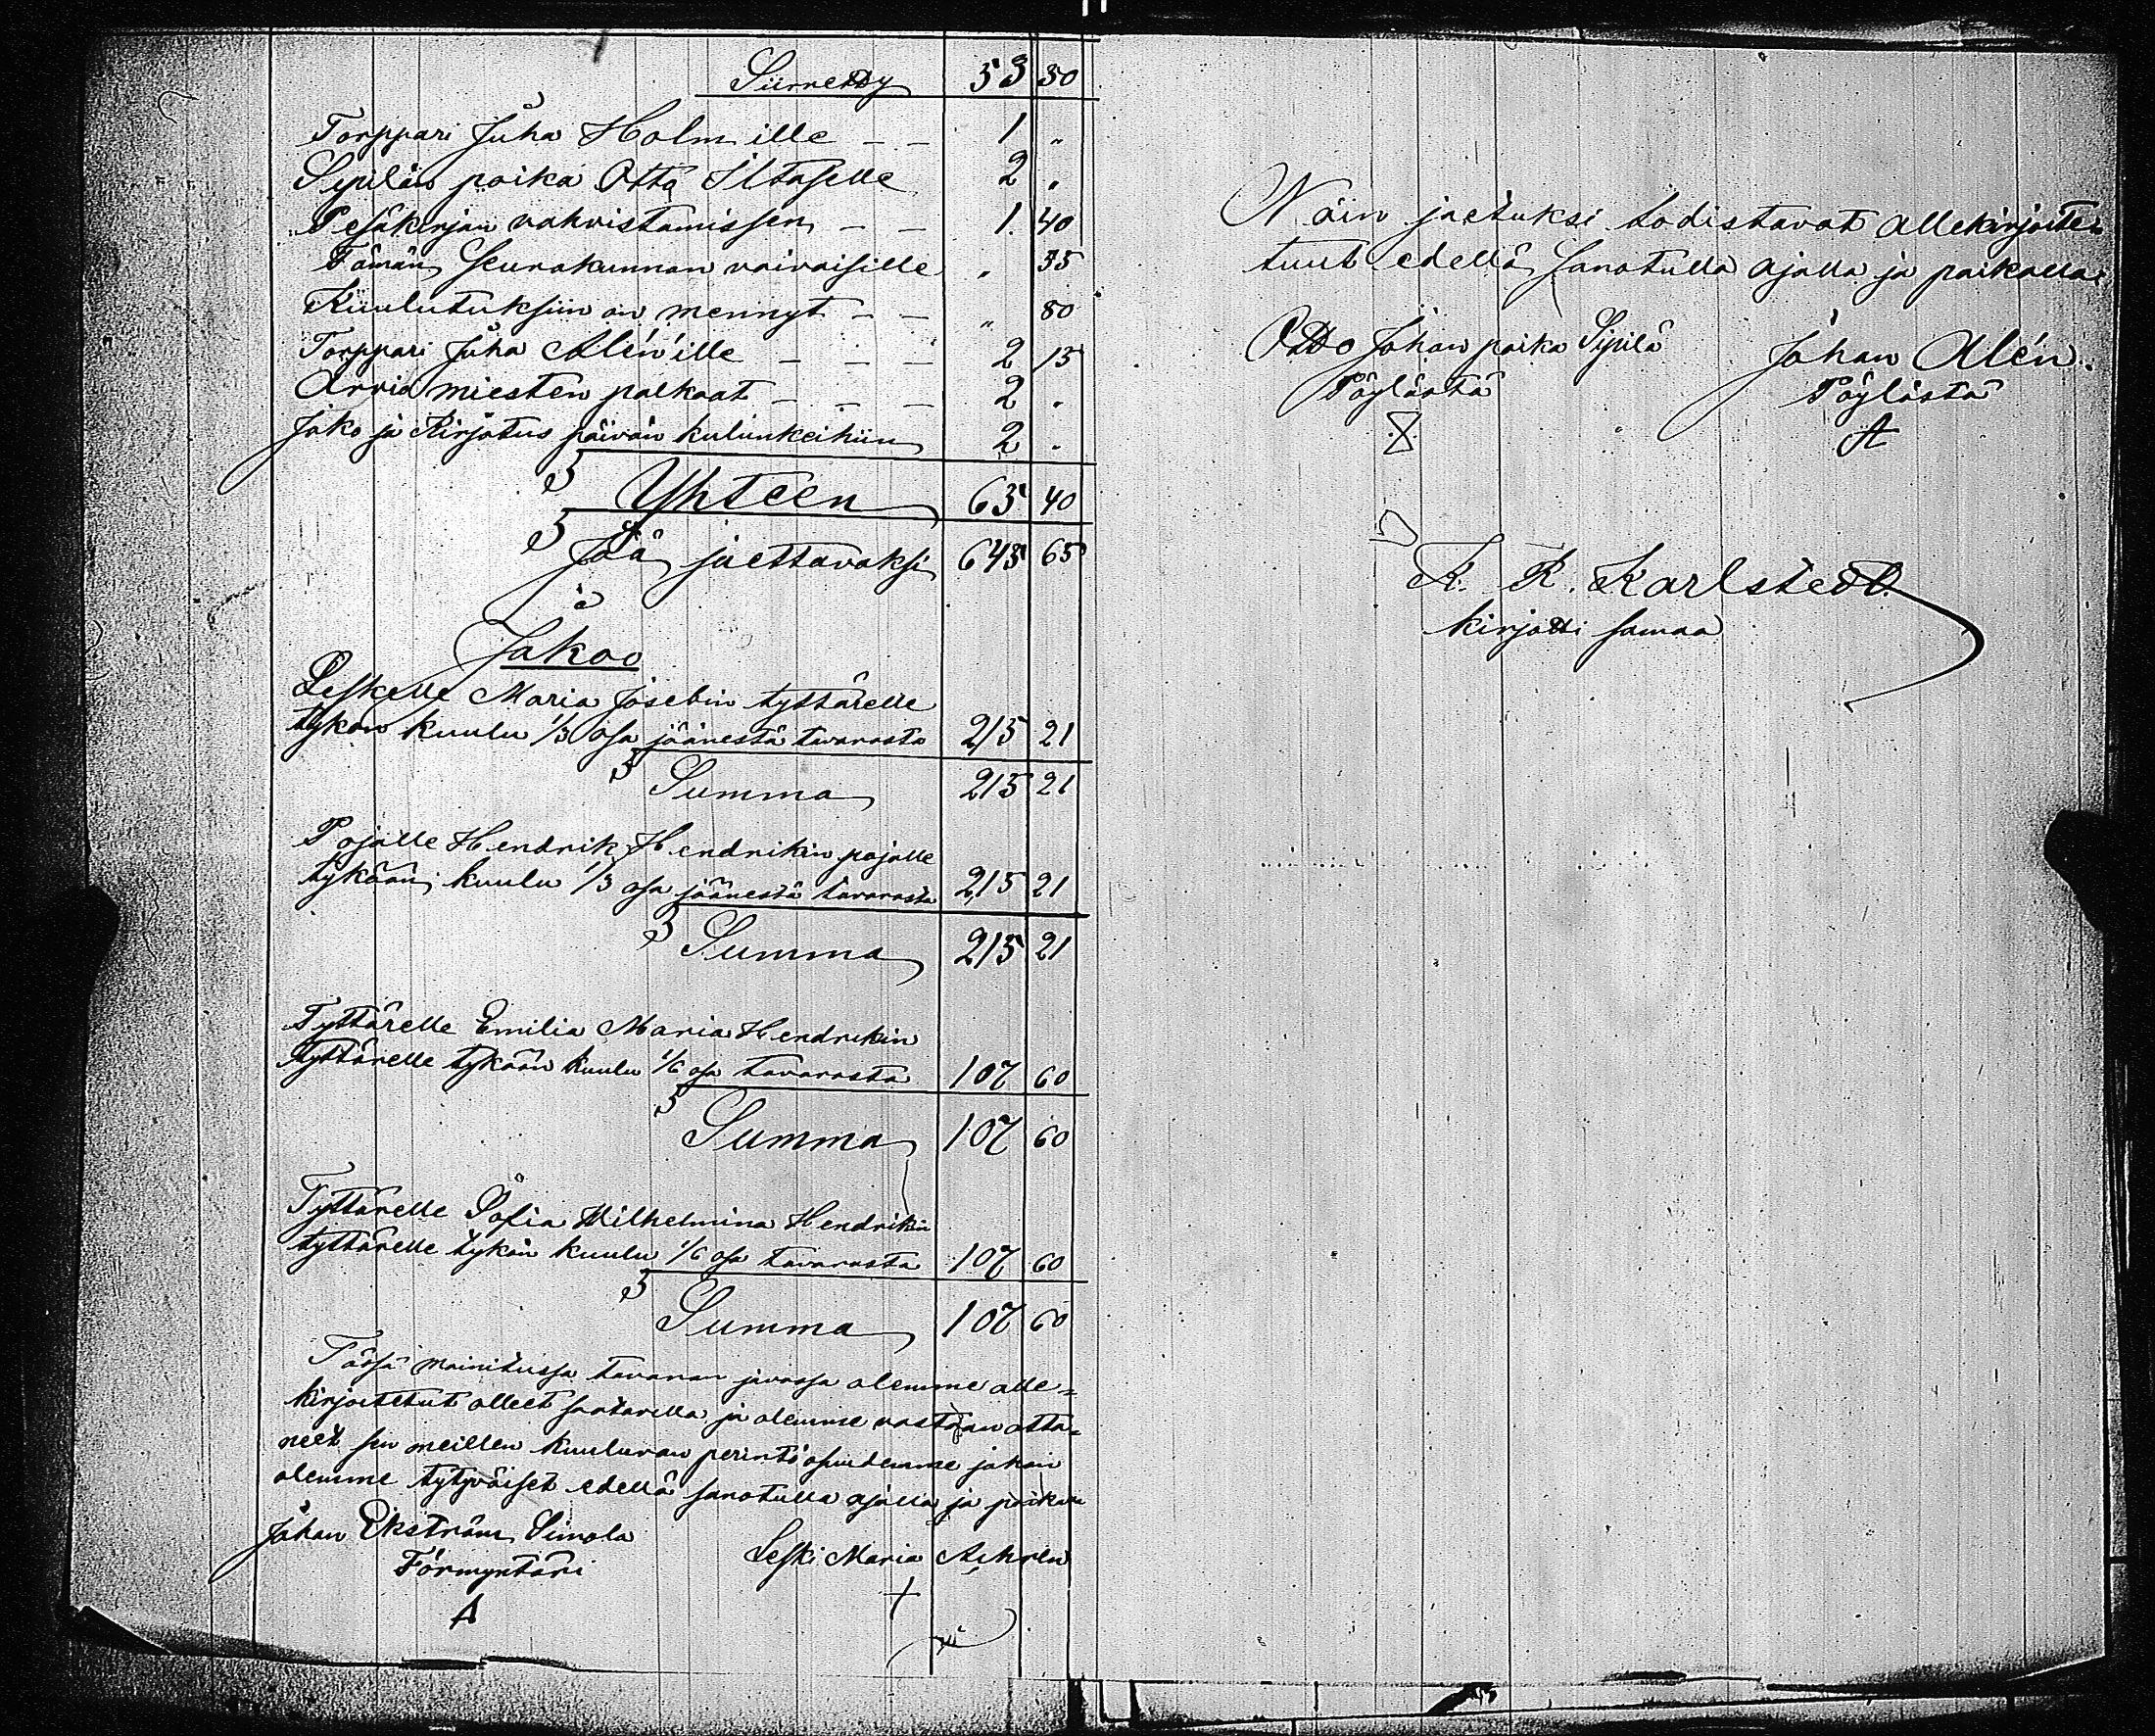 Siirretty 53 30
Torppari Juha Holmille – – 1 „
Sipilän poika Otto Iltaselle 2 „
Pesäkirjan vahvistamissen – – 1. 40
Tämän Seurakunnan vaivaisille „ 35
Kuulutuksiin on mennyt – – „ 80
Torppari Juha Alén'ille – – – 2 15
Arvio miesten palkaat – – – 2 „
Jako ja Kirjotus päivän kulunkeihiin 2 „
S Yhteen 65 40
S Jää jaettavaksi 645 65
Jakoo
Leskelle Maria Josebin tyttärelle
tykön kuulu 1/3 osa jäänestä tavarasta 215 21
S Summa 215 21
Pojalle Hendrik Hendrikin pojalle
tykään kuulu 1/3 osa jäänestä tavarasta 215 21
S Summa 215 21
Tyttärelle Emilia Maria Hendrikin
tyttärelle tykään kuulu 1/6 osa tavarasta 107 60
S Summa 107 60
Tyttärelle Sofia Wilhelmina Hendrikin
tyttärelle tykön kuulu 1/6 osa tavarasta 107 60
S Summa 107 60
Tässä mainitussa tavaran jaossa olemme alle=
kirjoitetut olleet saatavilla ja olemme vastaan otta=
neet sen meillen kuuluvan perintö osuudemme johon
olemme tytyväiset edellä sanotulla ajalla ja paikalla
Johan Ekström Simola
Förmyntäri
A
Leski Maria
+
Näin jaetuksi todistavat allekirjoite=
tuut edellä sanotulla ajalla ja paikalla.
Otto Johan poika Sipilä Johan Alén.
Pöylästä Pöylästä
A
K. R. Karlstedt
kirjotti samaa